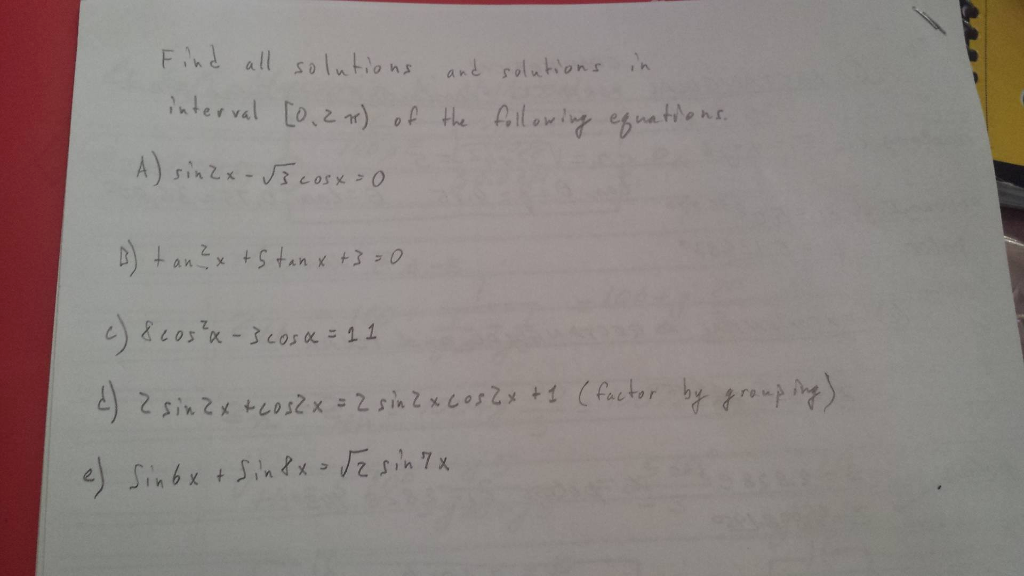 Find all solutions and solutions in
interval [0, 2π) of the following equations.
A) sin2x - √3 cosx = 0
B) tan²x + 5 tan x + 3 = 0
c) 8cos²α - 3cosα = 11
d) 2 sin2x + cos2x = 2 sin2xcos2x + 1 (factor by grouping)
e) Sin6x + Sin8x = √2 sin7x